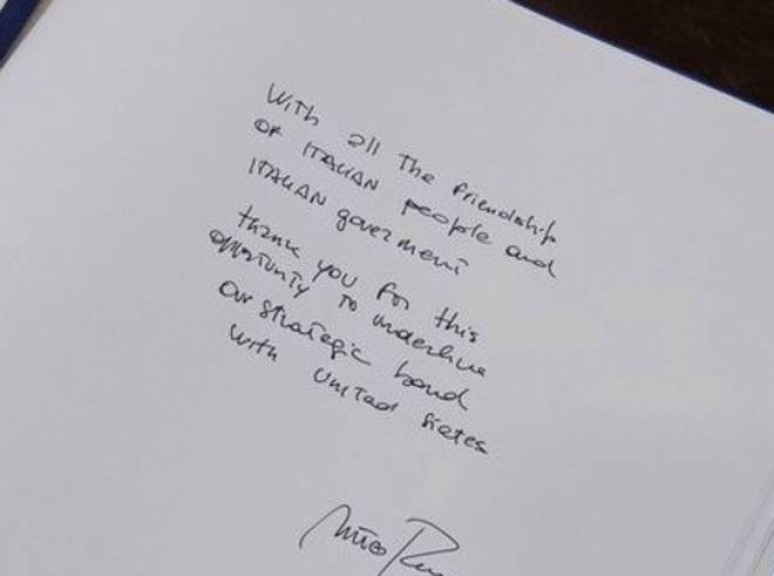 With all The friendship
OF ITALIAN people and
ITALIAN goverment
thank you for this
opportunity to underline
our strategic bond
with United States